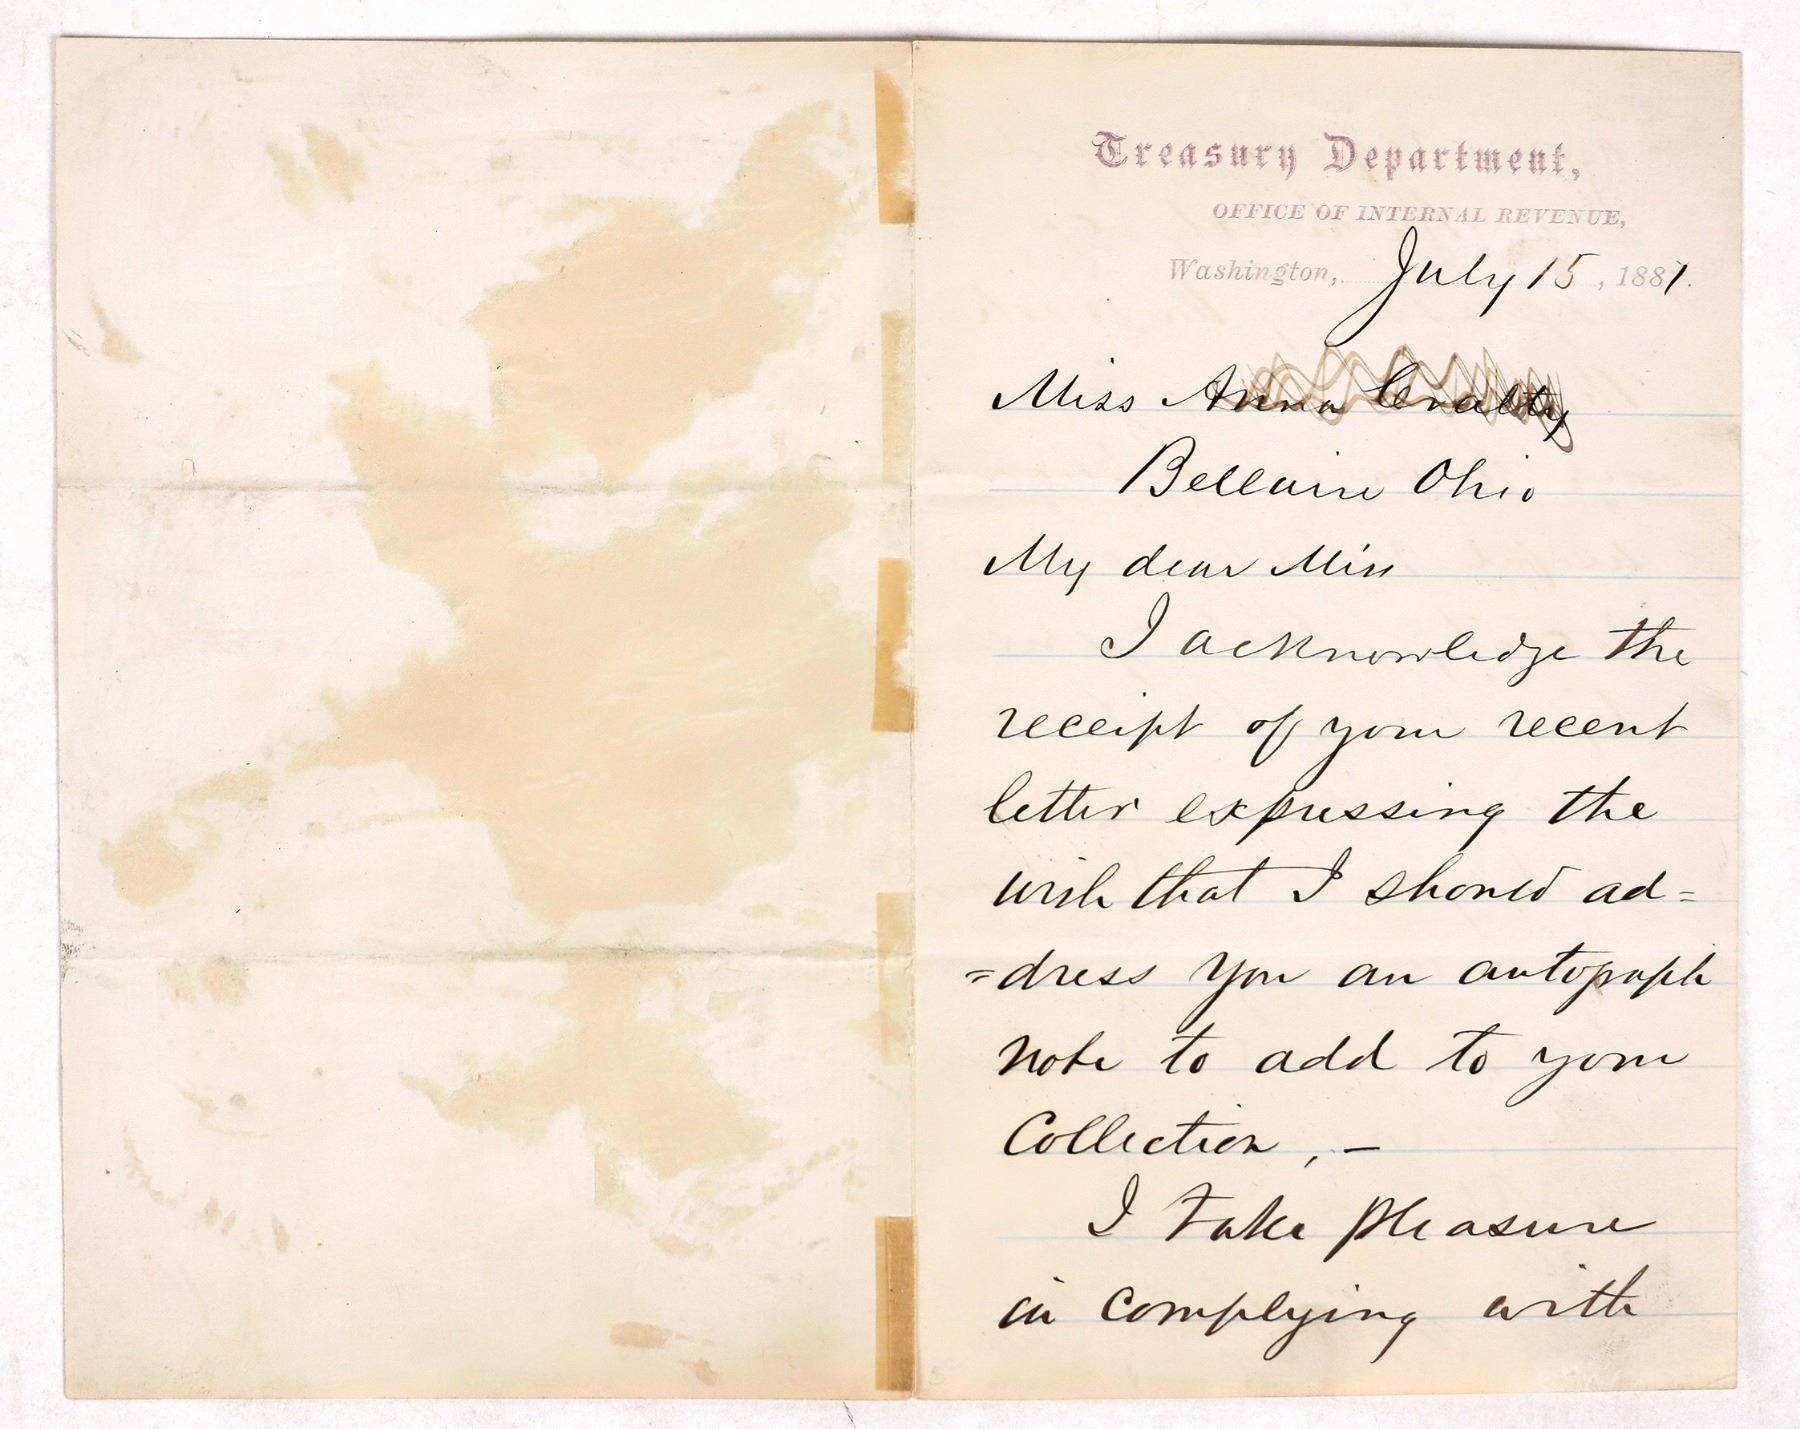 Treasury Department,
OFFICE OF INTERNAL REVENUE,
Washington, July 15, 1881.
Miss Anna
Bellaire Ohio
My dear Miss
I acknowledge the
receipt of your recent
letter expressing the
wish that I should ad=
=dress you an autograph
note to add to your
Collection, —
I take pleasure
in complying with